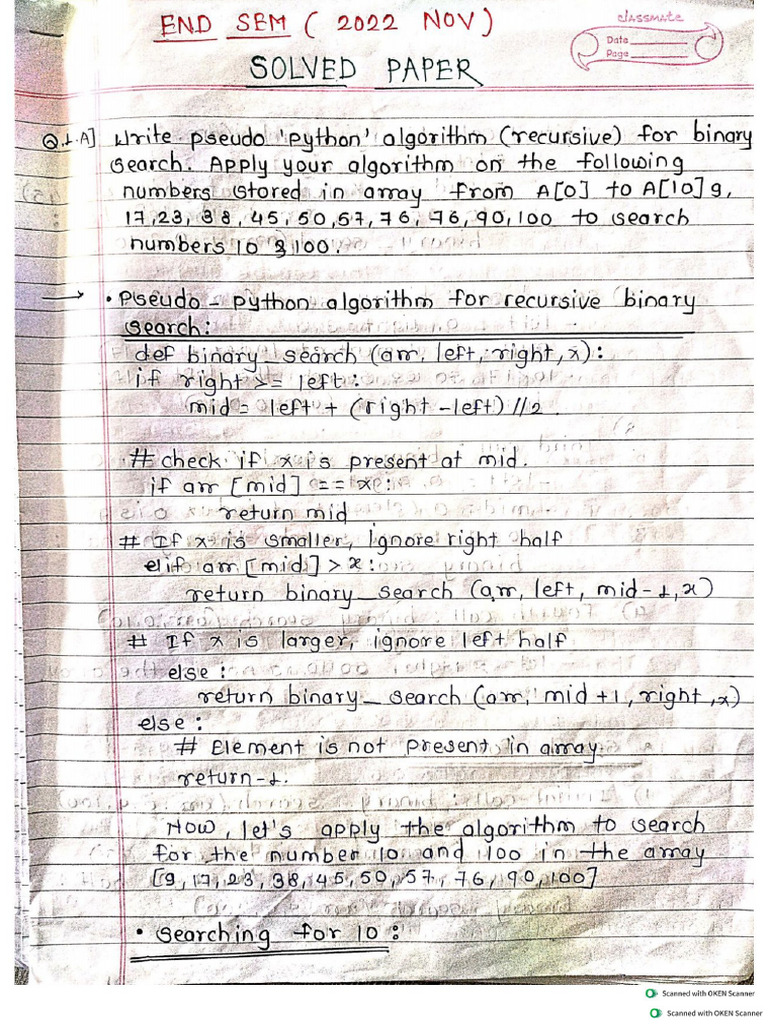 END SEM ( 2022 NOV )
classmate
Date
Page
SOLVED PAPER
Q.1.A] Write pseudo 'python' algorithm (recursive) for binary
search. Apply your algorithm on the following
numbers stored in array from A[0] to A[10] 9,
17,23, 38, 45, 50,57,76, 76, 90, 100 to search
numbers 10 & 100.
→ • Pseudo - python algorithm for recursive binary
search:
def binary_search (arr, left, right, x):
if right >= left:
mid = left + (right - left) // 2.
# check if x is present at mid.
if arr [mid] == x:
return mid
# If x is smaller, ignore right half
elif arr [mid] > x:
return binary_search (arr, left, mid-1, x)
# If x is larger, ignore left half
else:
return binary_search (arr, mid +1, right, x)
else:
# Element is not present in array.
return -1.
Now, let's apply the algorithm to search
for the number 10 and 100 in the array
[9, 17, 23, 38, 45, 50, 57, 76, 90, 100]
• Searching for 10 :
Scanned with OKEN Scanner
Scanned with OKEN Scanner